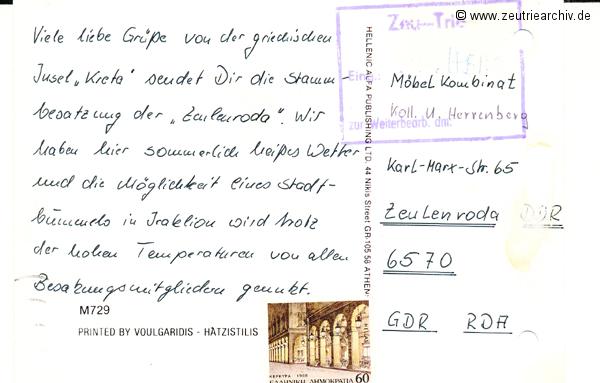 © www.zeutriearchiv.de
Viele liebe Grüße von der griechischen
Insel „Kreta" sendet Dir die Stamm-
besatzung der „Zeulenroda". Wir
haben hier sommerlich heißes Wetter
und die Möglichkeit eines Stadt-
bummels in Iraklion wird trotz
der hohen Temperaturen von allen
Besatzungsmitgliedern genutzt.
M729
PRINTED BY VOULGARIDIS - HATZISTILIS
HELLENIC ALFA PUBLISHING LTD. 44 Nikis Street GR-105 58 ATHENS
Zeu-Trie
Eing.:
zur Weiterbearb. an:
Möbel Kombinat
Koll. U. Herrenberg
Karl-Marx-Str. 65
Zeulenroda DDR
6570
GDR RDA
ΚΕΡΚΥΡΑ 1988
ΕΛΛΗΝΙΚΗ ΔΗΜΟΚΡΑΤΙΑ 60